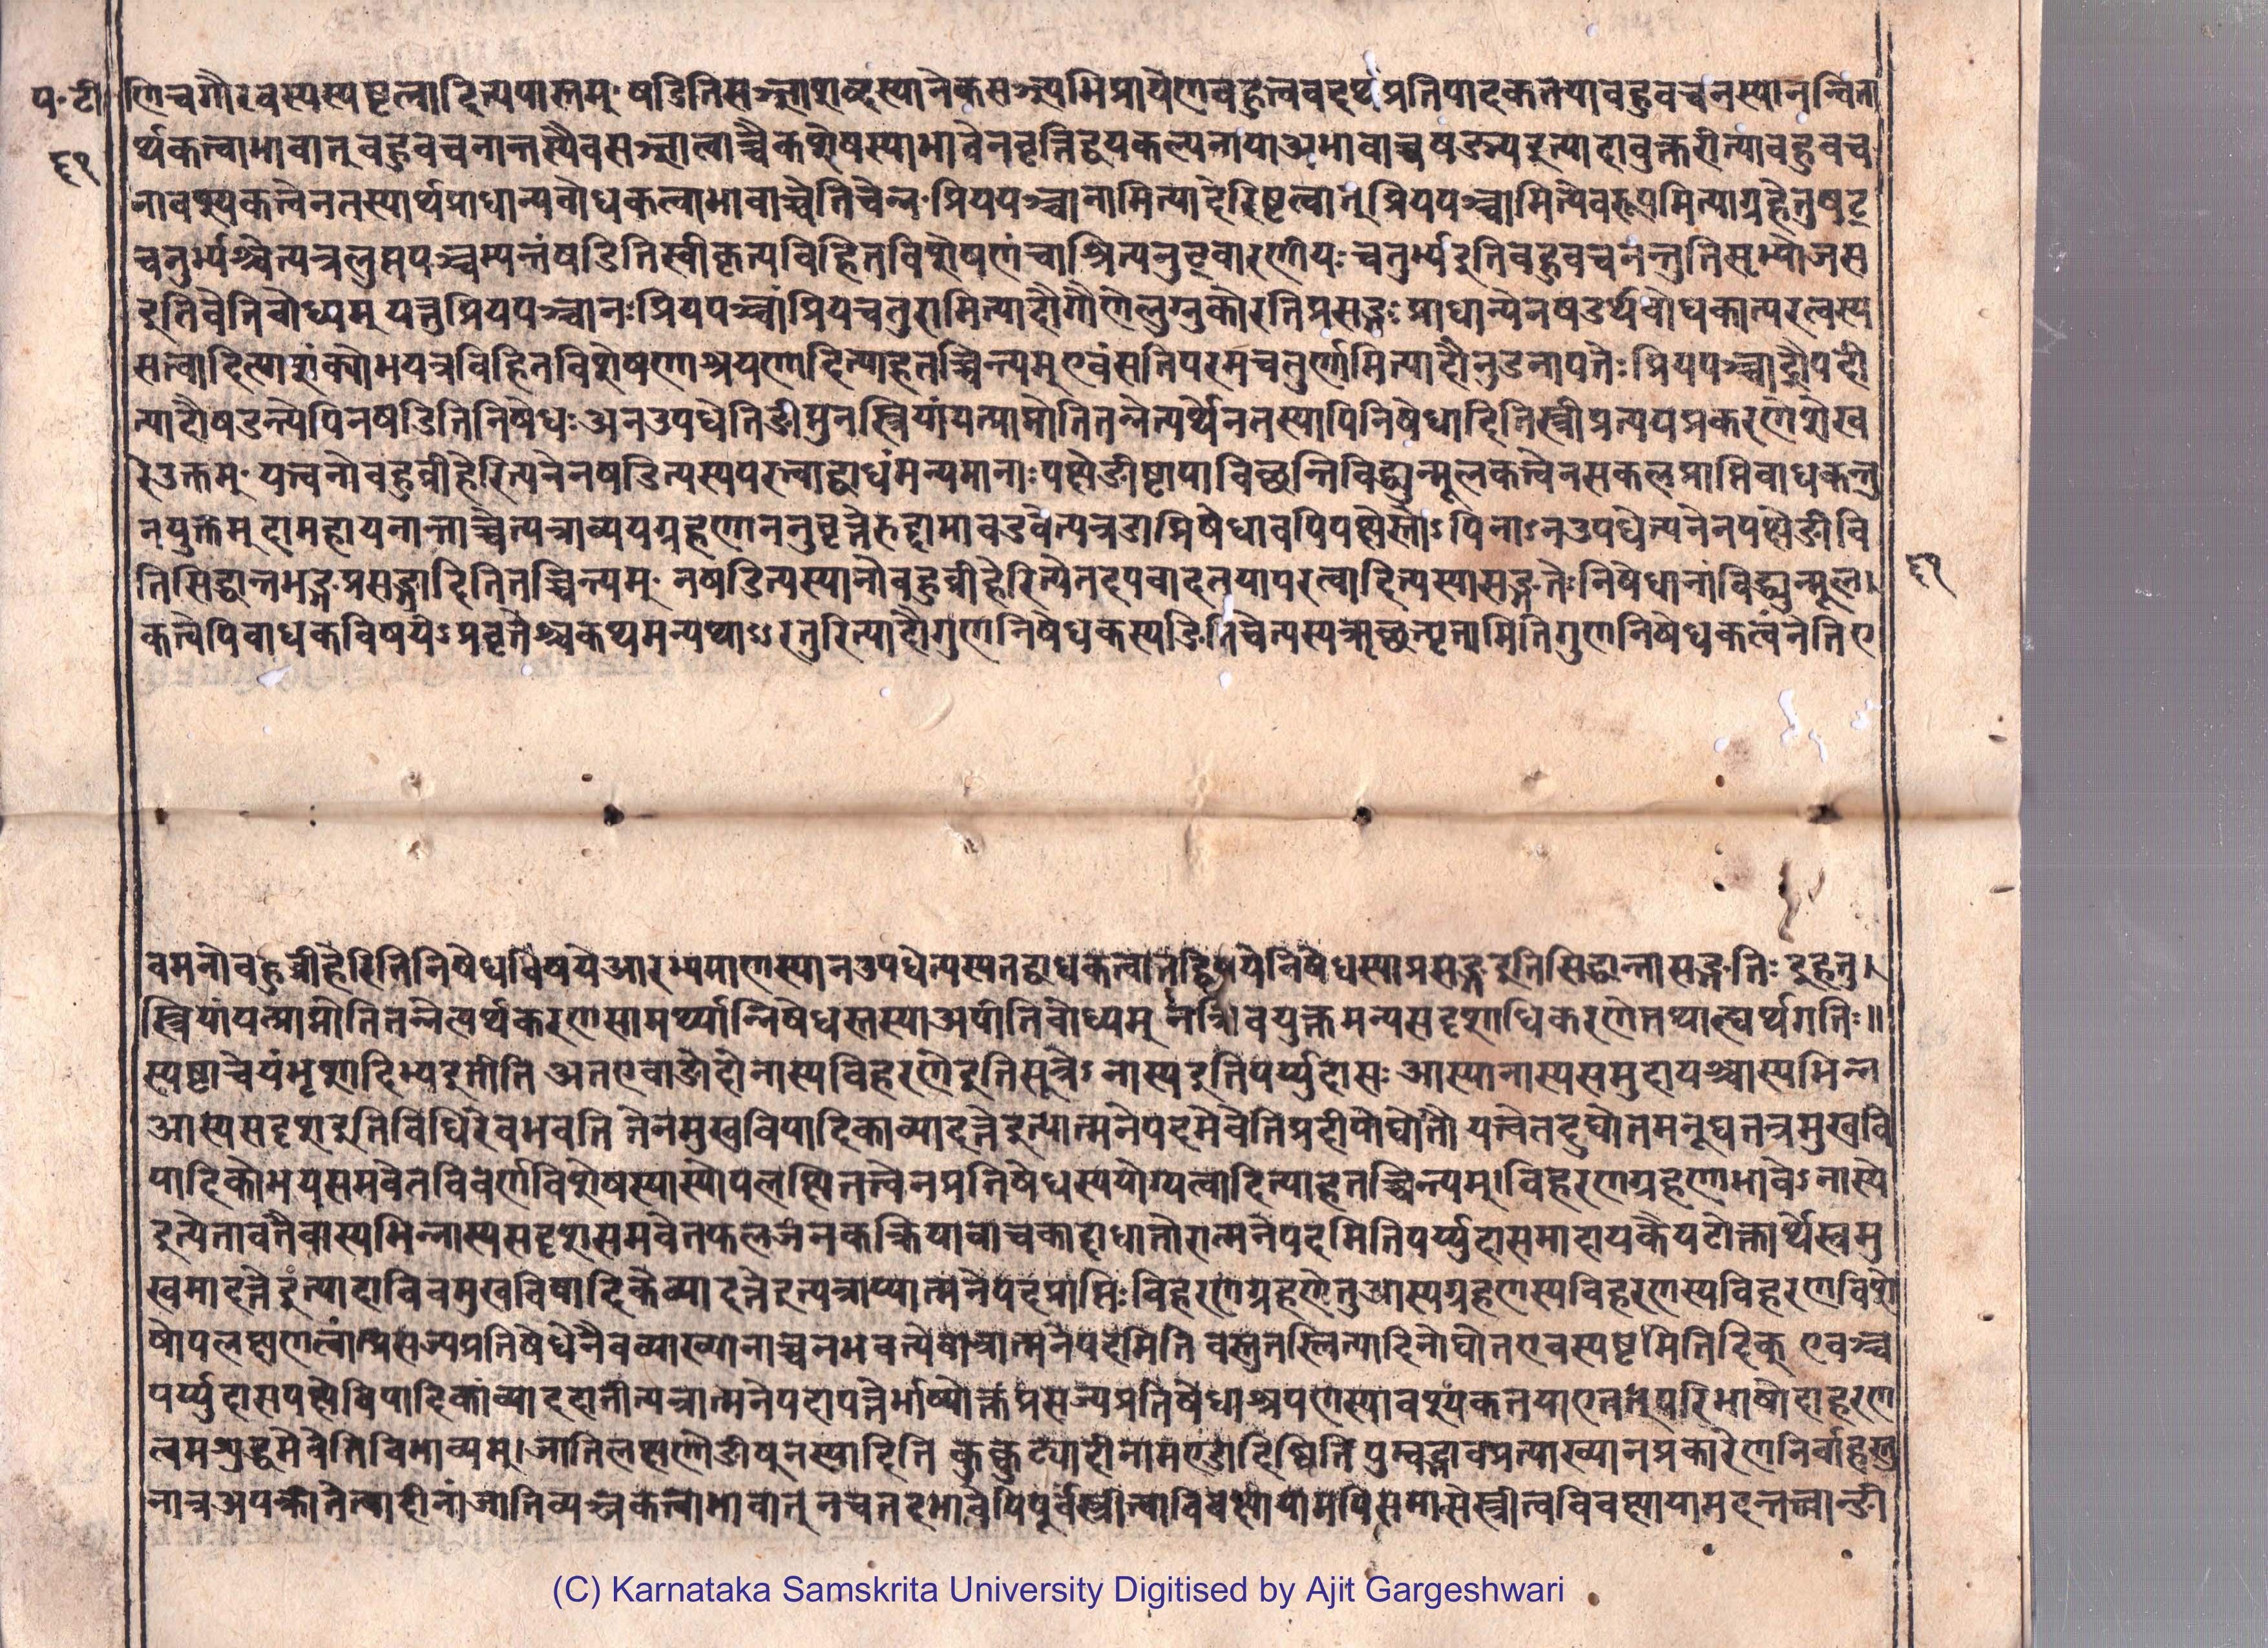 प॰टी
६९
णेचगौरवस्यस्पष्टत्वादित्यपास्तम् षडितिसञ्ज्ञाशब्दस्यानेकसञ्ज्ञ्यभिप्रायेणबहुत्ववदर्थप्रतिपादकतयाबहुवचनस्यानन्विता
र्थकत्वाभावात् बहुवचनान्तस्यैवसञ्ज्ञात्वाच्चैकशेषस्याभावेनवृत्तिद्वयकल्पनायाअभावाच्चषड्भ्यइत्यादावुक्तरीत्याबहुवच
नावश्यकत्वेनतस्यार्थप्राधान्यबोधकत्वाभावाच्चेतिचेन्न प्रियपञ्चानामित्यादेरिष्टत्वात् प्रियपञ्चामित्येवरूपमित्याग्रहेतुषट्
चतुर्भ्यश्चेत्यत्रलुप्तपञ्चम्यन्तंषडितिस्वीकृत्यविहितविशेषणंचाश्रित्यनुड्वारणीयः चतुर्भ्यइतिबहुवचनन्तुतिसृभ्योजस
इतिवेतिबोध्यम् यत्तुप्रियपञ्चानः प्रियपञ्चांप्रियचतुरामित्यादौगौणेलुग्नुकोरतिप्रसङ्गः प्राधान्येनषडर्थबोधकात्परत्वस्य
सत्वादित्याशंक्योभयत्रविहितविशेषणाश्रयणादित्याहतच्चिन्त्यम् एवंसतिपरमचतुर्णामित्यादौनुडनापत्तेः प्रियपञ्चाद्रौपदी
त्यादौषडन्त्येपिनषडितिनिषेधः अनउपधेतिङीप्तुनस्त्रियांयत्प्राप्नोतितन्नेत्यर्थेनतस्यापिनिषेधादितिस्त्रीप्रत्ययप्रकरणेशेख
रेउक्तम् यत्त्वनोबहुव्रीहेरित्यनेनषडित्यस्यपरत्वाद्बाधंमन्यमानाः पक्षेङीष्टापाविच्छन्तिविद्ध्युन्मूलकत्वेनसकलप्राप्तिबाधकन्तु
नयुक्तम् दामहायनान्ताच्चेत्यत्राव्ययग्रहणाननुवृत्तेरुद्दामावडवेत्यत्रडाप्निषेधावपिपक्षेस्तोऽपिनाऽनउपधेत्यनेनपक्षेङीबि
तिसिद्धान्तभङ्गप्रसङ्गादितितच्चिन्त्यम् नषडित्यस्यानोबहुव्रीहेरित्येतदपवादतयापरत्वादित्यस्यासङ्गतेः निषेधानांविद्ध्युन्मूल।
६९
कत्वेपिबाधकविषयेऽप्रवृत्तेश्चकथमन्यथाऽऽरतुरित्यादौगुणनिषेधकस्यङ्कितिचेत्यस्यऋच्छत्यृतामितिगुणनिषेधकत्वंनेतिए
वमनोबहुव्रीहेरितिनिषेधविषयेआरभ्यमाणस्यानउपधेत्यस्यतद्बाधकत्वात्तद्विषयेनिषेधस्याप्रसङ्गइतिसिद्धान्तासङ्गतिः इहतु।
स्त्रियांयत्प्राप्नोतितन्नेत्यर्थकरणसामर्थ्यान्निषेधस्तस्याअपीतिबोध्यम् नञिवयुक्तमन्यसदृशाधिकरणेतथाह्यर्थगतिः॥
स्पष्टाचेयंभृशादिभ्यइतीति अतएवाङोदोनास्यविहरणेइतिसूत्रेऽनास्यइतिपर्य्युदासः आस्यानास्यसमुदायश्चास्यभिन्न
आस्यसदृशइतिविधिरेवभवति तेनमुखविपादिकाव्यादत्तेइत्यात्मनेपदमेवेतिप्रदीपोद्योतौ यत्त्वेतदुद्योतमनूद्यतत्रमुखवि
पादिकोभयसमवेतविवर्णविशेषस्यास्योपलक्षितत्त्वेनप्रतिषेधस्ययोग्यत्वादित्याहतच्चिन्त्यम्। विहरणग्रहणाभावेऽनास्ये
इत्येतावतैवास्यभिन्नास्यसदृशसमवेतफलजनकक्रियावाचकाद्दाधातोरात्मनेपदमितिपर्य्युदासमादायकैयटोक्तार्थेस्वमु
खमादत्तेइत्यादाविवमुखविपादिकेव्यादत्तेइत्यत्राप्यात्मनेपदप्राप्तिः विहरणग्रहणेतुआस्यग्रहणस्यविहरणस्यविहरणविशे
षोपलक्षणत्वात्प्रसज्यप्रतिषेधेनैवव्याख्यानाच्चनभवत्येषोत्रात्मनेपदमिति वस्तुतस्त्वित्यादिनोद्योतएवस्पष्टमितिदिक् एवञ्च
पर्य्युदासपक्षेविपादिकांव्याददातीत्यत्रात्मनेपदोपपत्तेर्भाष्योक्तप्रसज्यप्रतिषेधाश्रयणस्यावश्यकतयाएतत्तुपरिभाषोदाहरण
त्वमशुद्धमेवेतिविभाव्यम्। जातिलक्षणोङीष्तुनस्यादिति कुक्कुट्यादीनामण्डादिष्विति पुम्वद्भावप्रत्याख्यानप्रकारेणनिर्वाहस्तु
नात्रअपक्रीतेत्वादीनांजातिव्यञ्जकत्वाभावात् नचतदभावेपिपूर्वंस्त्रीत्वाविवक्षायामपिसमासेस्त्रीत्वविवक्षायामदन्तत्वान्ङी
(C) Karnataka Samskrita University Digitised by Ajit Gargeshwari